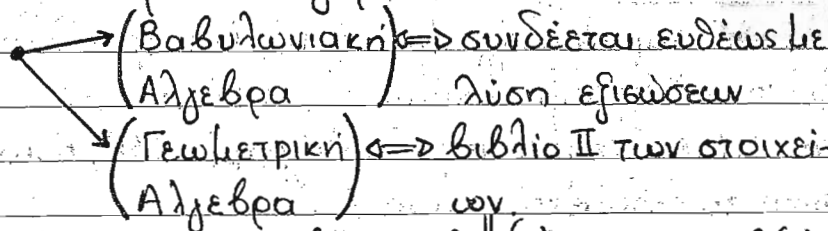 (Βαβυλωνιακή Αλγεβρα) <=> συνδέεται ευθέως με
λύση εξισώσεων
(Γεωμετρική Αλγεβρα) <=> βιβλίο II των στοιχεί-
ων.